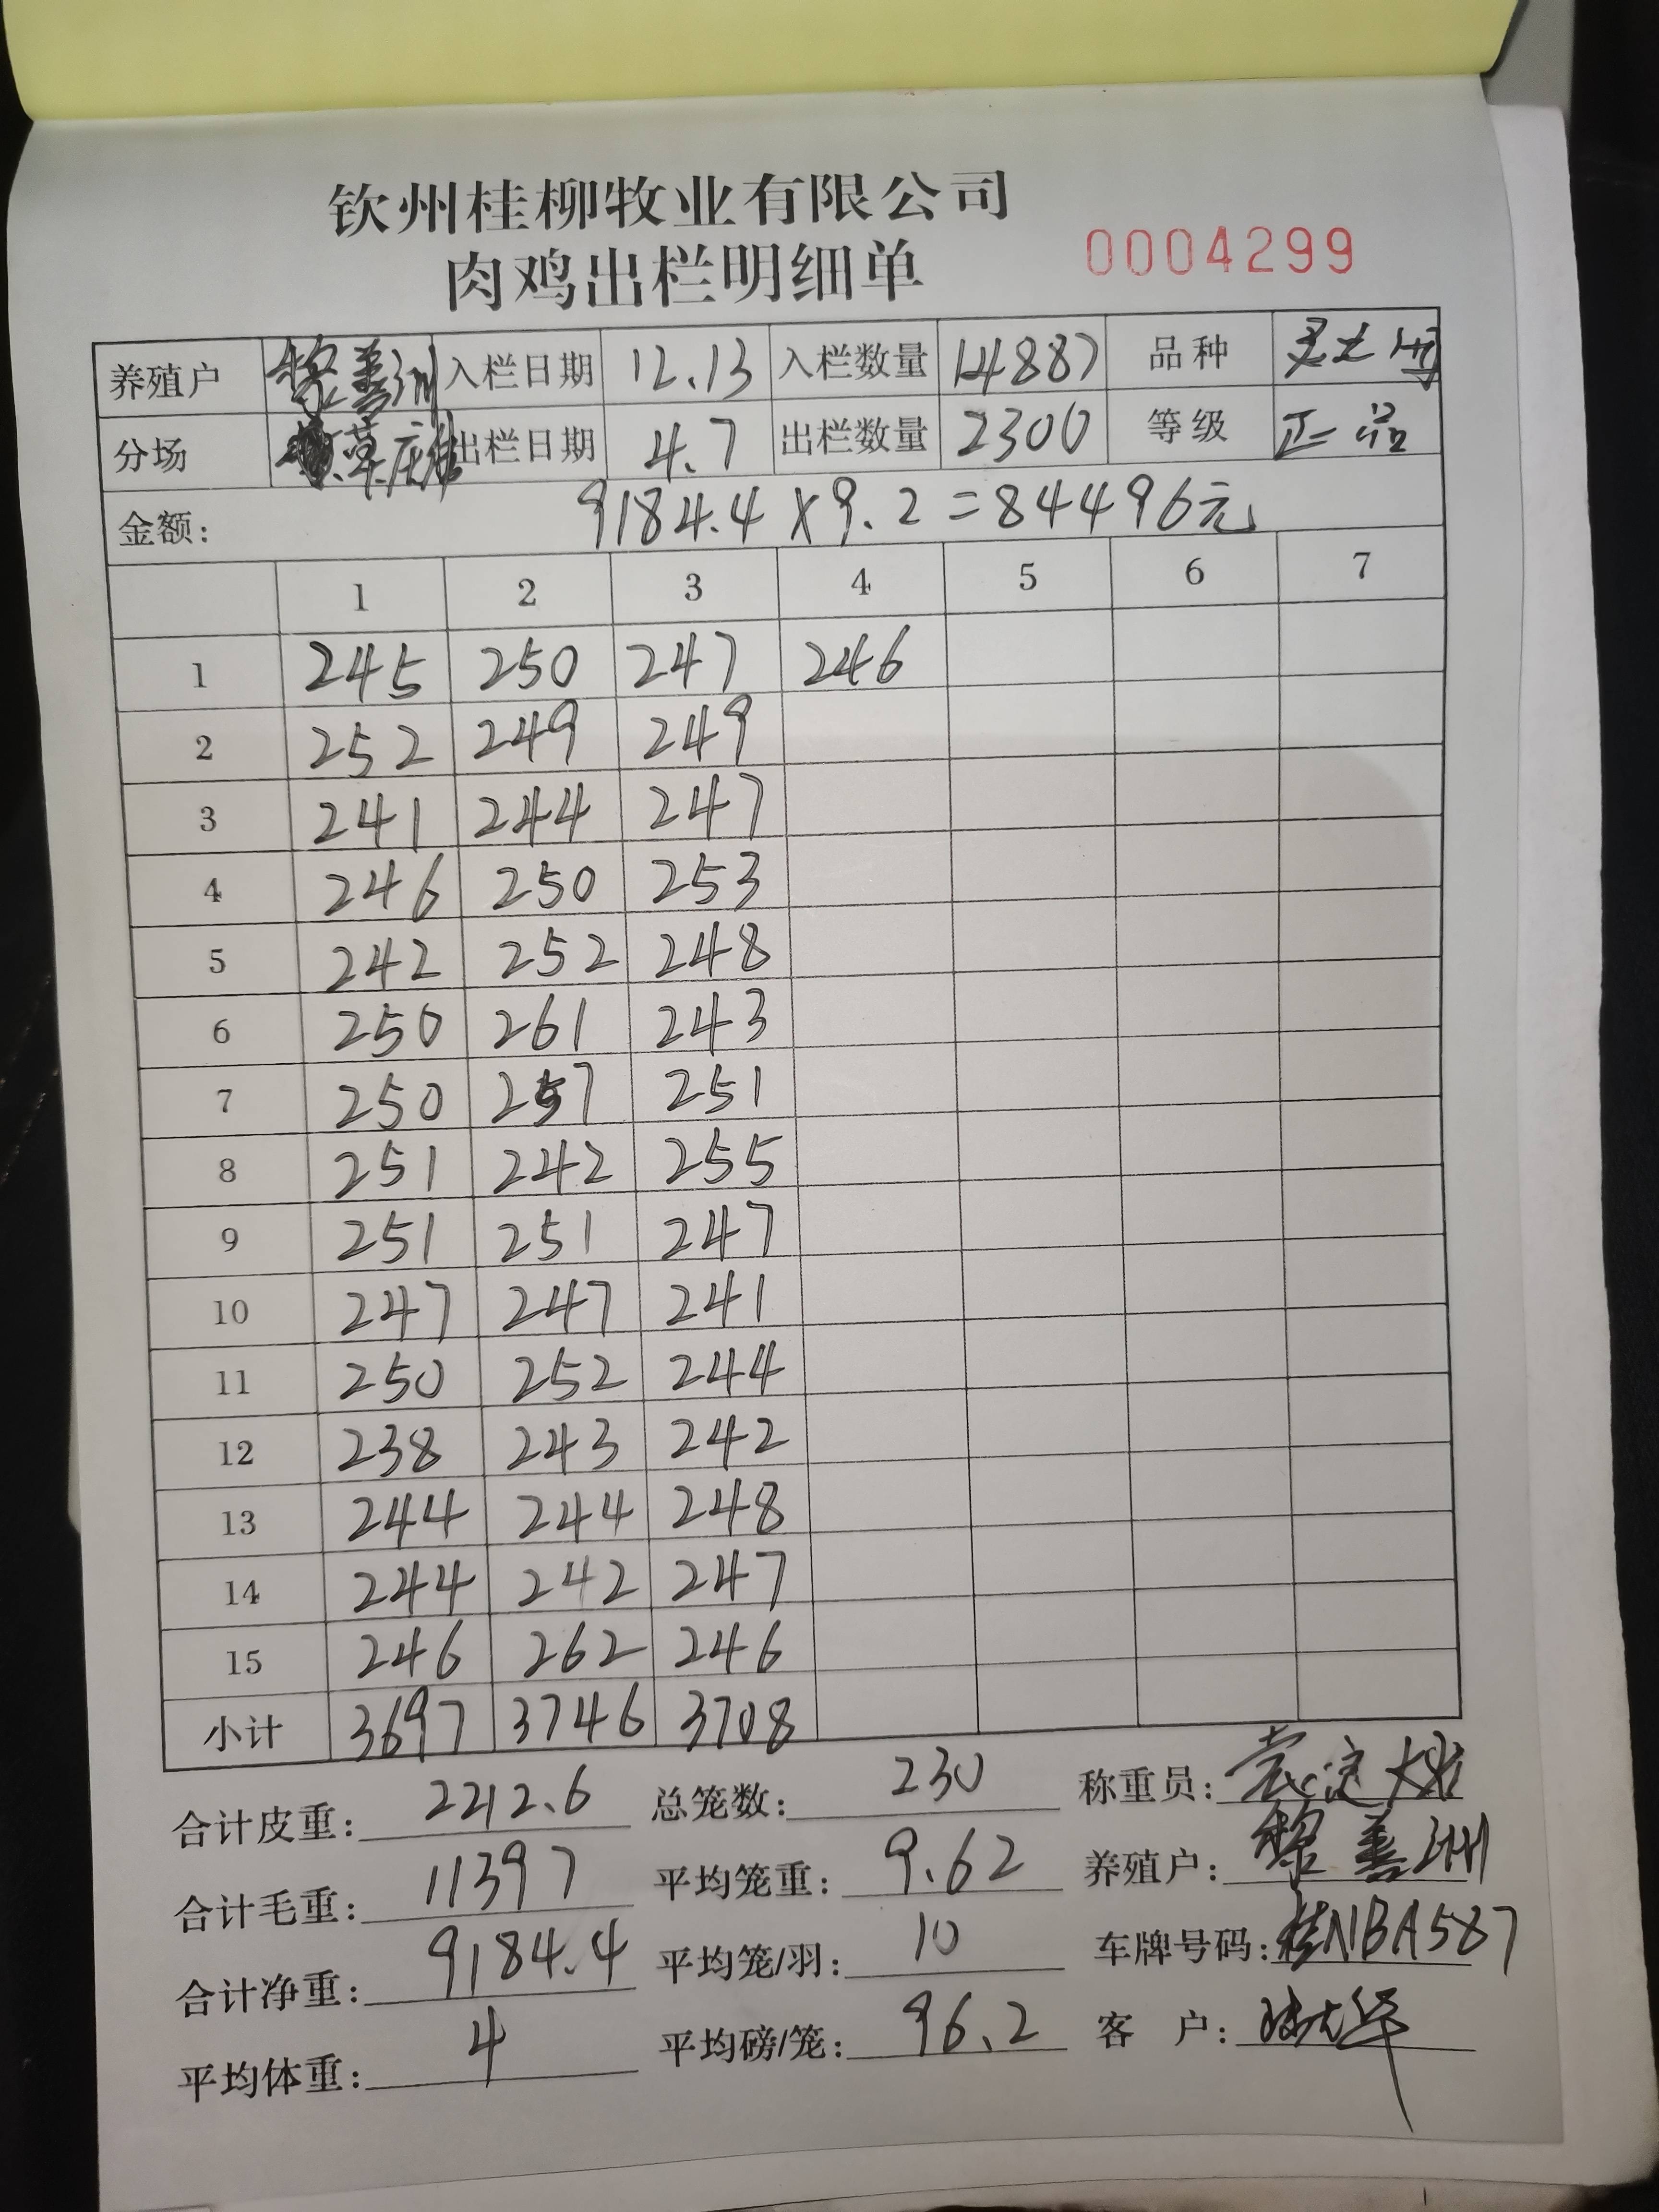 钦州桂柳牧业有限公司
肉鸡出栏明细单 0004299
养殖户 黎善洲 入栏日期 12.13 入栏数量 14887 品种
分场 出栏日期 4.7 出栏数量 2300 等级 正品
金额: 9184.4×9.2=84496元
1 2 3 4 5 6 7
1 245 250 247 246
2 252 249 249
3 241 244 247
4 246 250 253
5 242 252 248
6 250 261 243
7 250 257 251
8 251 242 255
9 251 251 247
10 247 247 241
11 250 252 244
12 238 243 242
13 244 244 248
14 244 242 247
15 246 262 246
小计 3697 3746 3708
合计皮重: 2212.6 总笼数: 230 称重员:
合计毛重: 11397 平均笼重: 9.62 养殖户: 黎善洲
合计净重: 9184.4 平均笼/羽: 10 车牌号码: 桂NBA587
平均体重: 4 平均磅/笼: 96.2 客 户: